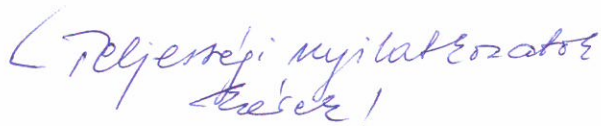 (Teljességi nyilatkozatok
kérek!